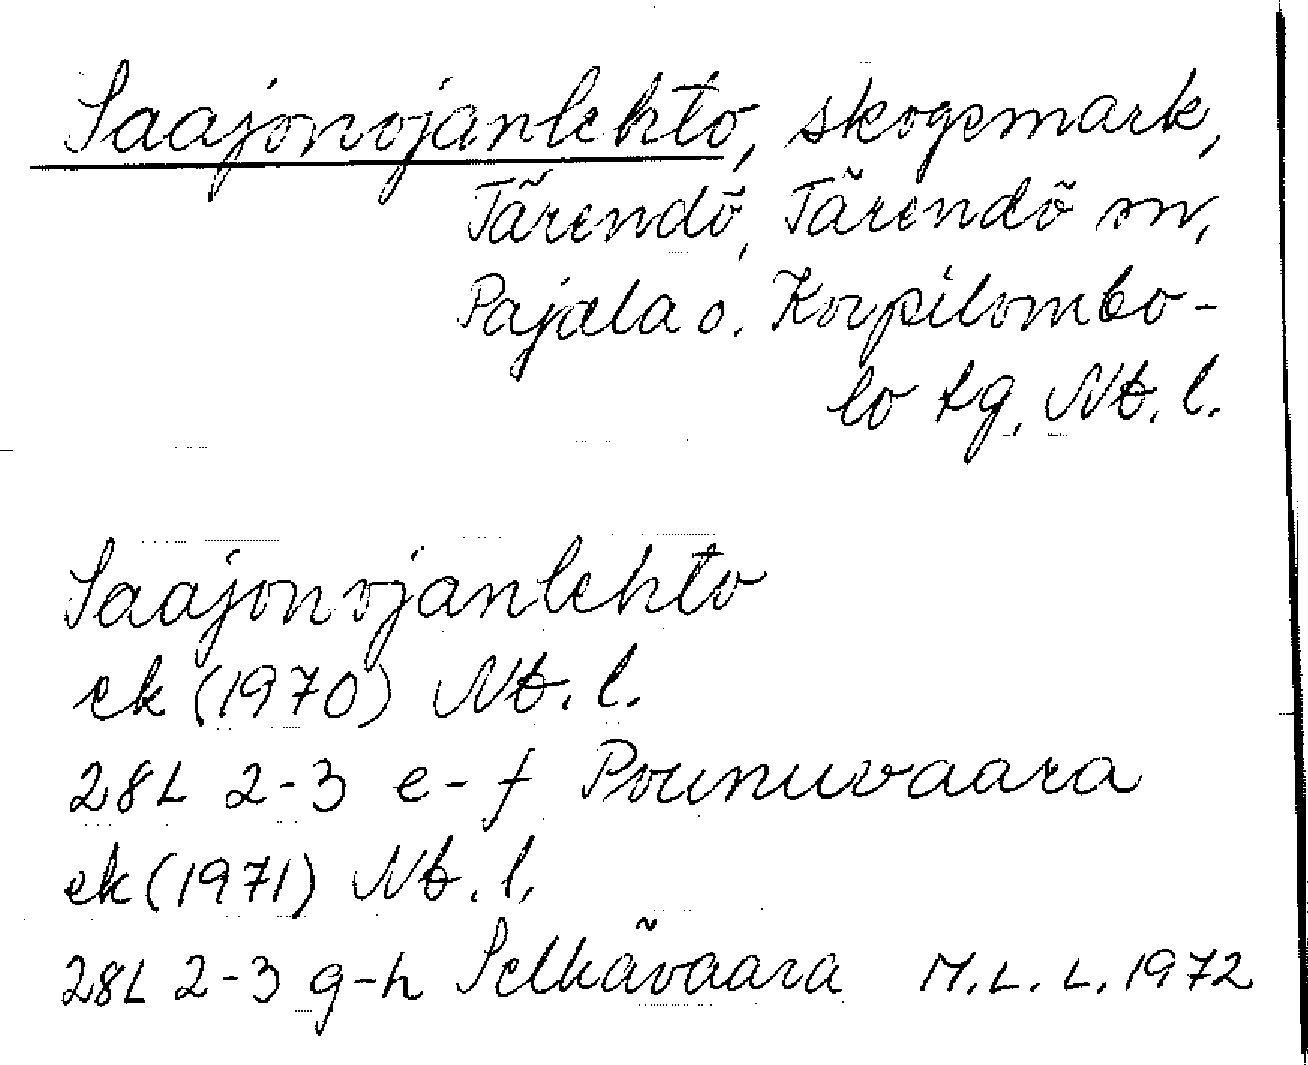 Saajonojanlehto, skogsmark,
Tärendö, Tärendö sn,
Pajala o. Korpilombo-
lo tg, Nb. l.
Saajonojanlehto
ek (1970) Nb. l.
28L 2-3 e-f Pounuvaara
ek (1971) Nb. l.
28L 2-3 g-h Selkävaara M.L.L. 1972